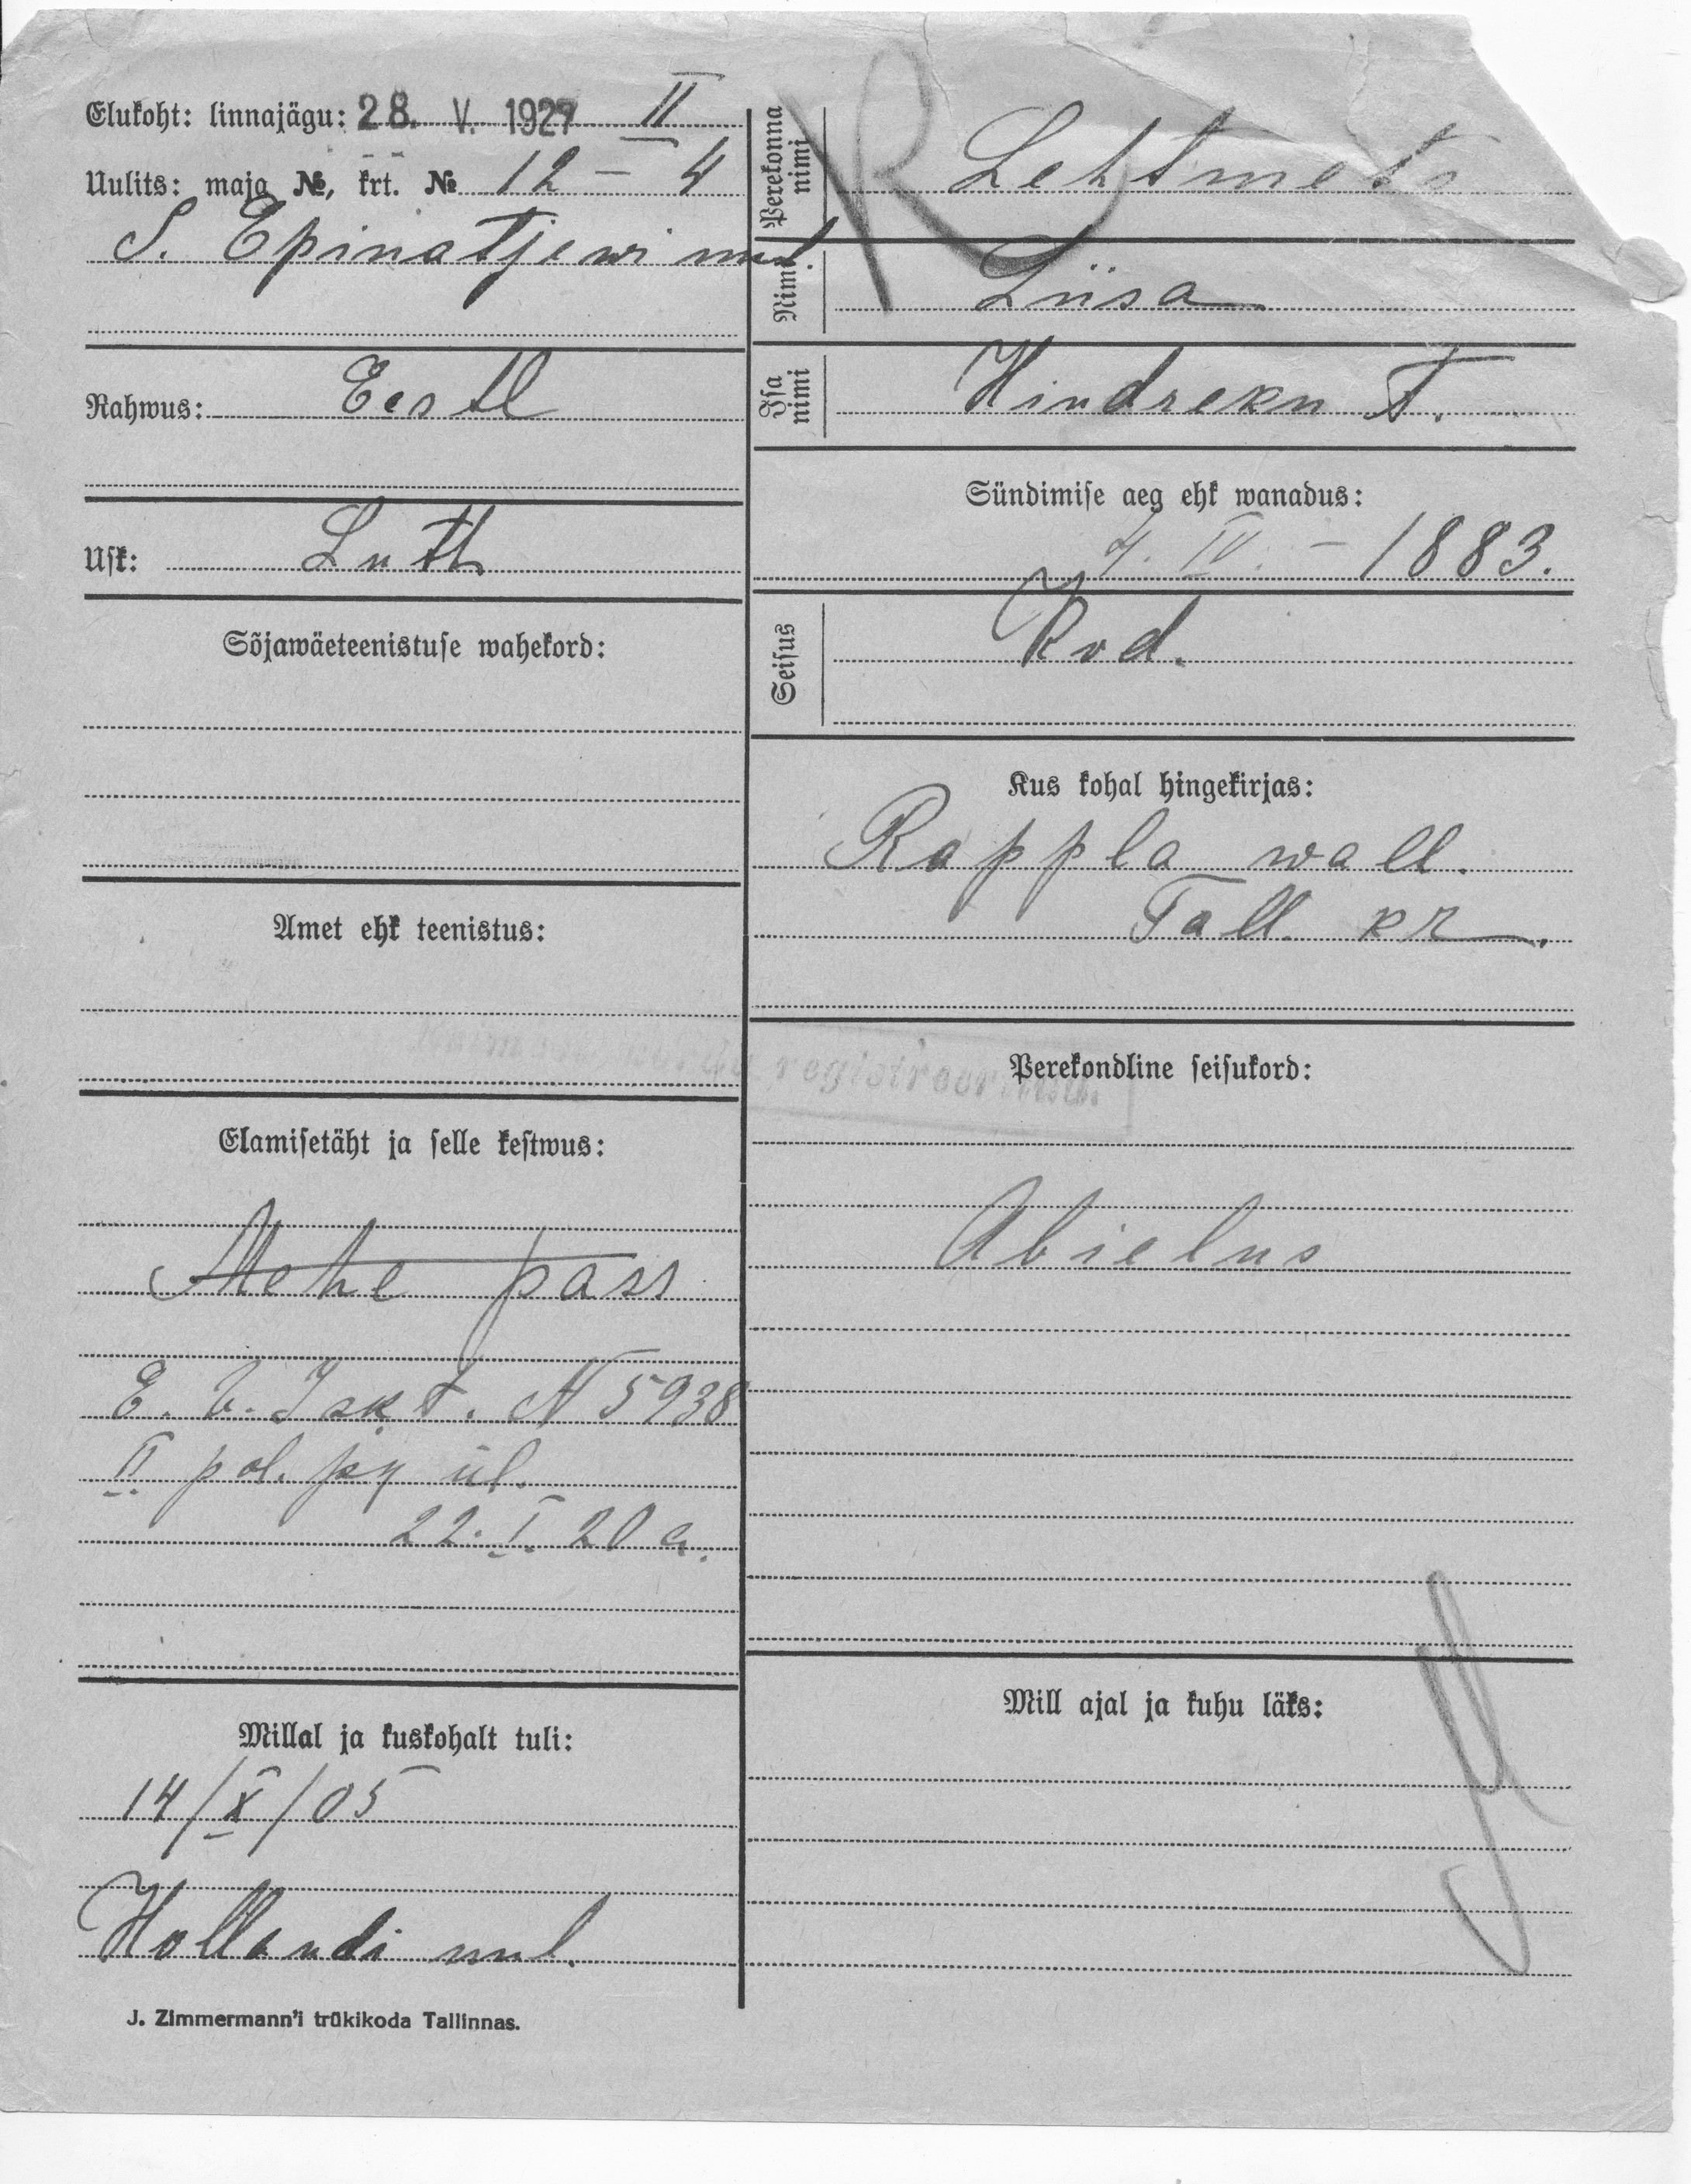 Elukoht: linnajägu: 28. V. 1927 II
Uulits: maja №, krt. № 12 – 4
S. Epinatjewi uul.
Rahwus: Eestl
Usk: Luth
Sõjawäeteenistuse wahekord:
Amet ehk teenistus:
Elamisetäht ja selle kestwus:
Mehe pass
E. V. Isk. t. N 5938
II pol. ül.
22. I. 20 a.
Millal ja kuskohalt tuli:
14/X/05
Hollandi uul.
J. Zimmermann'i trükikoda Tallinnas.
Perekonna nimi Lehtmets
Nimi Liisa
Isa nimi Hindreku t.
Sündimise aeg ehk wanadus:
4. IV. – 1883.
Seisus Kod.
Kus kohal hingekirjas:
Rappla wall.
Tall. kr.
registreeritud.
Perekondline seisukord:
Abielus
Mill ajal ja kuhu läks:
R